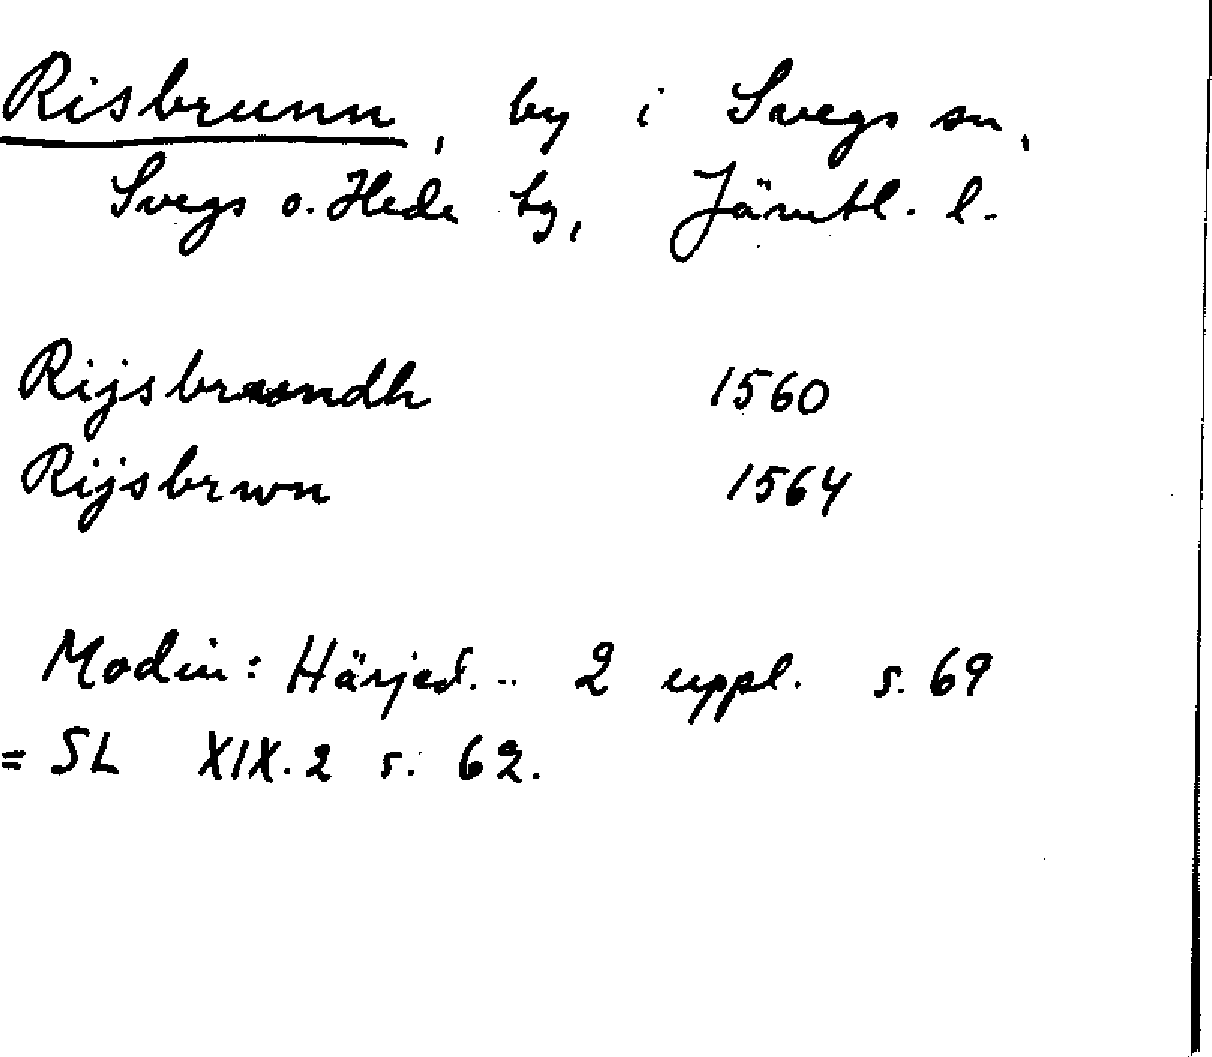 Risbrunn, by i Svegs sn,
Svegs o. Hede tg, Jämtl. l.
Rijsbrwndh 1560
Rijsbrwn 1564
Modin: Härjed. .. 2 uppl. s. 69
= SL XIX.2 s. 62.